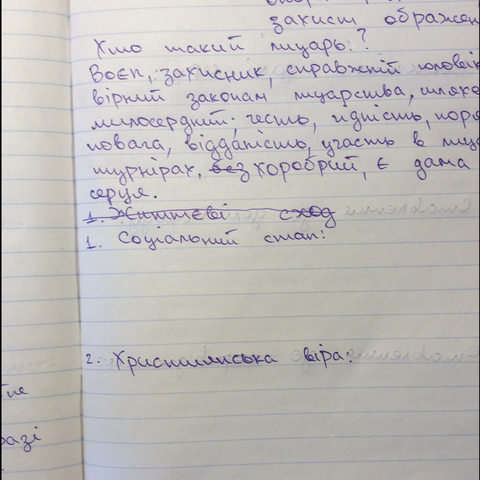 захист ображен
Хто такий лицарь?
Воєн, захисник, справжній чоловік
вірний законам лицарства, шляхе
милосердний; честь, гідність, поря
повага, відданість, участь в лица
турнірах, без хоробрий, є дама
серця.
1. Життєві сход
1. Соціальний стан:
2. Християнська віра:
разі